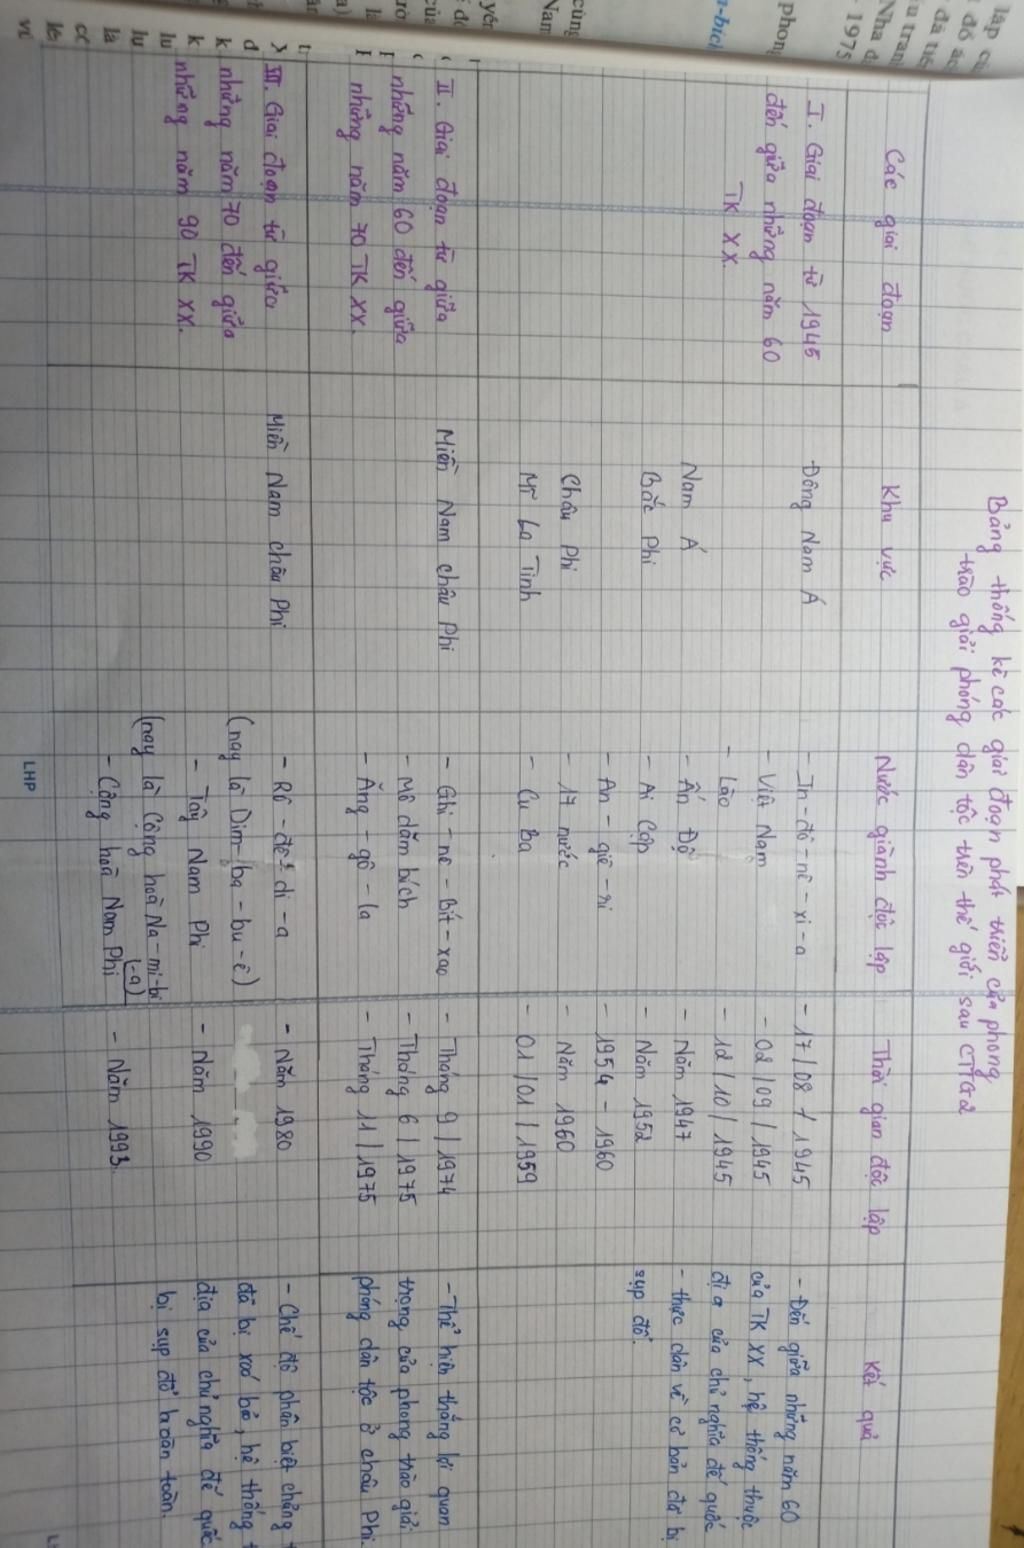 Bảng thống kê các giai đoạn phát triển của phong
trào giải phóng dân tộc trên thế giới sau CTTG2
Các giai đoạn
Khu vực
Nước giành độc lập
Thời gian độc lập
Kết quả
I. Giai đoạn từ 1945
đến giữa những năm 60
TK XX.
Đông Nam Á
Nam Á
Bắc Phi
Châu Phi
Mĩ La Tinh
- In-đô-nê-xi-a
- Việt Nam
- Lào
- Ấn Độ
- Ai Cập
- An-giê-ri
- 17 nước
- Cu Ba
- 17/08/1945
- 02/09/1945
- 12/10/1945
- Năm 1947
- Năm 1952
- 1954-1960
- Năm 1960
- 01/01/1959
- Đến giữa những năm 60
của TK XX, hệ thống thuộc
địa của chủ nghĩa đế quốc
- thực dân về cơ bản đã bị
sụp đổ.
II. Giai đoạn từ giữa
những năm 60 đến giữa
những năm 70 TK XX.
Miền Nam châu Phi
- Ghi-nê-bít-xao
- Mô dăm bích
- Ăng-gô-la
- Tháng 9/1974
- Tháng 6/1975
- Tháng 11/1975
- Thể hiện thắng lợi quan
trọng của phong trào giải
phóng dân tộc ở châu Phi.
III. Giai đoạn từ giữa
những năm 70 đến giữa
những năm 90 TK XX.
Miền Nam châu Phi
- Rô-đê-di-a
(nay là Dim-ba-bu-ê)
- Tây Nam Phi
(nay là Cộng hoà Na-mi-bi
-a)
- Cộng hoà Nam Phi
- Năm 1980
- Năm 1990
- Năm 1993.
- Chế độ phân biệt chủng
đã bị xoá bỏ, hệ thống
địa của chủ nghĩa đế quốc
bị sụp đổ hoàn toàn.
LHP
lập
đồ
đã
tranh
Nha
1975
phong
-bích
cùng
Nam